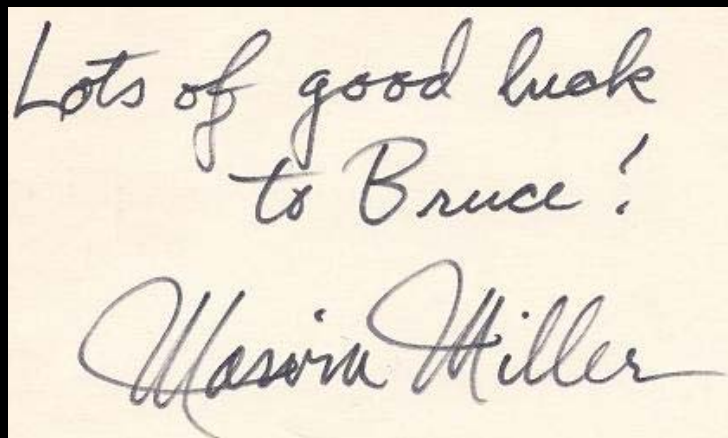 Lots of good luck
to Bruce!
Marvin Miller